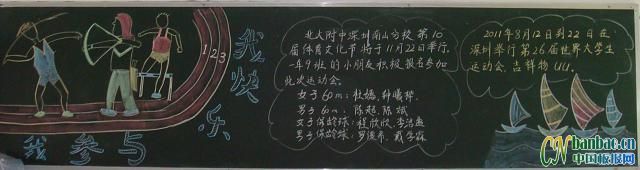 我参与
我快乐
1 2 3
北大附中深圳南山分校第10
届体育文化节将于11月22日举行.
一年9班的小朋友积极报名参加
此次运动会。
女子60m：
男子60m：陈
女子保龄球：程欣欣
男子保龄球：
2011年8月12日到22日在
深圳举行第26届世界大学生
运动会,吉祥物UU。
CN banbao.cn
中国板报网